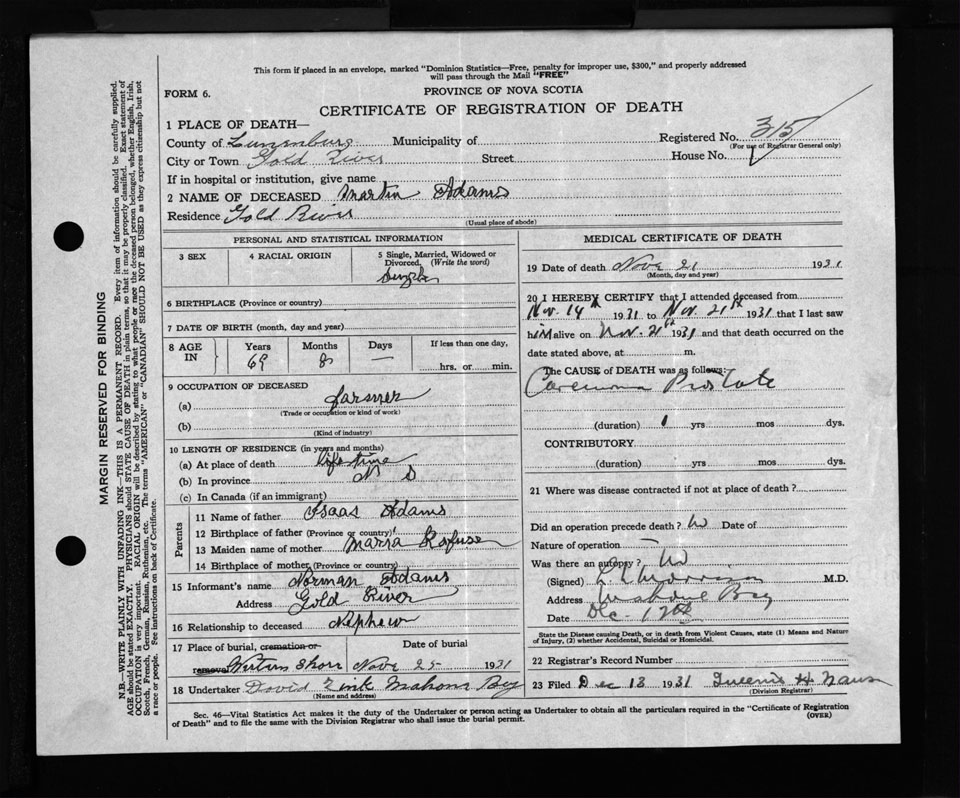 This form if placed in an envelope, marked "Dominion Statistics—Free, penalty for improper use, $300," and properly addressed
will pass through the Mail "FREE"
FORM 6.
PROVINCE OF NOVA SCOTIA
CERTIFICATE OF REGISTRATION OF DEATH
1 PLACE OF DEATH—
Registered No. 315
(For use of Registrar General only)
County of Lunenburg Municipality of
City or Town Gold River Street House No.
If in hospital or institution, give name
2 NAME OF DECEASED Martin Adams
Residence Gold River
(Usual place of abode)
PERSONAL AND STATISTICAL INFORMATION
3 SEX 4 RACIAL ORIGIN 5 Single, Married, Widowed or
Divorced. (Write the word)
Single
6 BIRTHPLACE (Province or country)
7 DATE OF BIRTH (month, day and year)
8 AGE IN Years Months Days If less than one day,
69 8 — hrs. or min.
9 OCCUPATION OF DECEASED
(a) farmer
(Trade or occupation or kind of work)
(b)
(Kind of industry)
10 LENGTH OF RESIDENCE (in years and months)
(a) At place of death life time
(b) In province N S
(c) In Canada (if an immigrant)
Parents
11 Name of father Isaas Adams
12 Birthplace of father (Province or country)
13 Maiden name of mother Maria Rafuse
14 Birthplace of mother (Province or country)
15 Informant's name Norman Adams
Address Gold River
16 Relationship to deceased Nephew
17 Place of burial, cremation or Date of burial
removal Western Shore Nove 25 1931
18 Undertaker David Zink Mahone Bay
(Name and address)
MEDICAL CERTIFICATE OF DEATH
19 Date of death Nove 21 1931
(Month, day and year)
20 I HEREBY CERTIFY that I attended deceased from
Nov. 14th 1931 to Nov. 21st 1931 that I last saw
him alive on Nov. 21st 1931 and that death occurred on the
date stated above, at m.
The CAUSE of DEATH was as follows:
Carcinoma Prostate
(duration) 1 yrs mos dys.
CONTRIBUTORY
(duration) yrs mos dys.
21 Where was disease contracted if not at place of death?
Did an operation precede death? No Date of
Nature of operation —
Was there an autopsy? No
(Signed) M.D.
Address Mahone Bay
Date Dec. 12th
State the Disease causing Death, or in death from Violent Causes, state (1) Means and Nature
of Injury, (2) whether Accidental, Suicidal or Homicidal.
22 Registrar's Record Number
23 Filed Dec 13 1931
(Division Registrar)
Sec. 46—Vital Statistics Act makes it the duty of the Undertaker or person acting as Undertaker to obtain all the particulars required in the "Certificate of Registration
of Death" and to file the same with the Division Registrar who shall issue the burial permit.
(OVER)
MARGIN RESERVED FOR BINDING
N.B.—WRITE PLAINLY WITH UNFADING INK—THIS IS A PERMANENT RECORD. Every item of information should be carefully supplied.
AGE should be stated EXACTLY. PHYSICIANS should STATE CAUSE OF DEATH in plain terms, so that it may be properly classified. Exact statement of
OCCUPATION is very important. RACIAL ORIGIN will be described by stating to what people or race the deceased person belonged, whether English, Irish,
Scotch, French, German, Russian, Ruthenian, etc. The terms "AMERICAN" or "CANADIAN" SHOULD NOT BE USED as they express citizenship but not
a race or people. See instructions on back of Certificate.